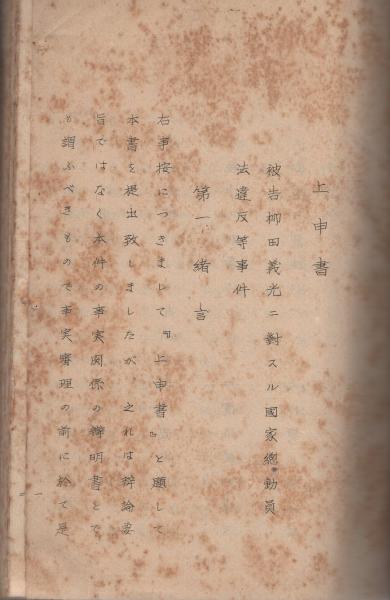 上申書
被告柳田義光ニ對スル國家總動員
法違反等事件
第一 緒言
右事按につきまして『上申書』と願して
本書を提出致しましたが、之れは辯論要
旨ではなく本件の事実関係の辯明書とで
も謂ふべきもので事実審理の前に於て是